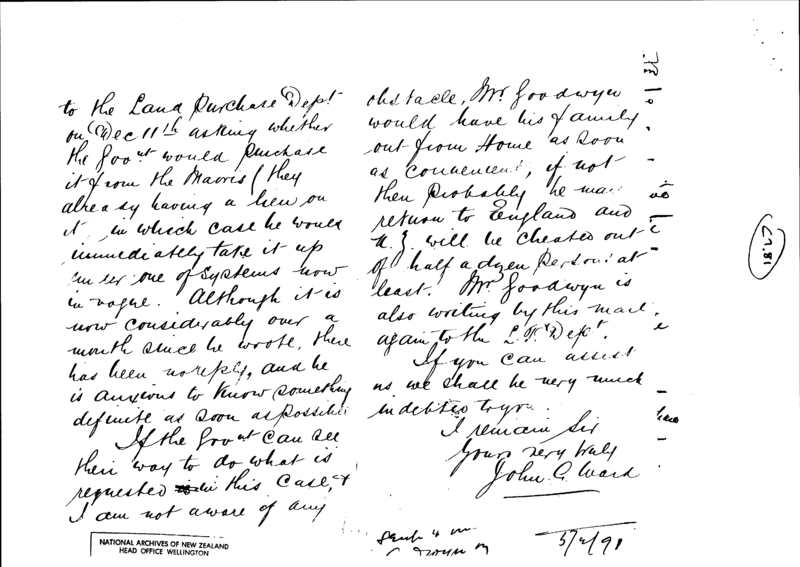 to the Land Purchase Dept
on Dec 11th asking whether
the Govt would purchase
it from the Maoris (they
already having a lien on
it in which case he would
immediately take it up
under one of systems now
in vogue. Although it is
now considerably over a
month since he wrote, there
has been no reply, and he
is anxious to know something
definite as soon as possible
If the Govt can see
their way to do what is
requested in this case, &
I am not aware of any
obstacle, Mr. Goodwyn
would have his family
out from Home as soon
as convenient, if not
then probably he may
return to England and
N.Z. will be cheated out
of half a dozen persons at
least. Mr Goodwyn is
also writing by this mail
again to the L.P. Dept.
If you can assist
us we shall be very much
indebted to you.
I remain Sir
Yours very truly
John C. Ward
NATIONAL ARCHIVES OF NEW ZEALAND
HEAD OFFICE WELLINGTON